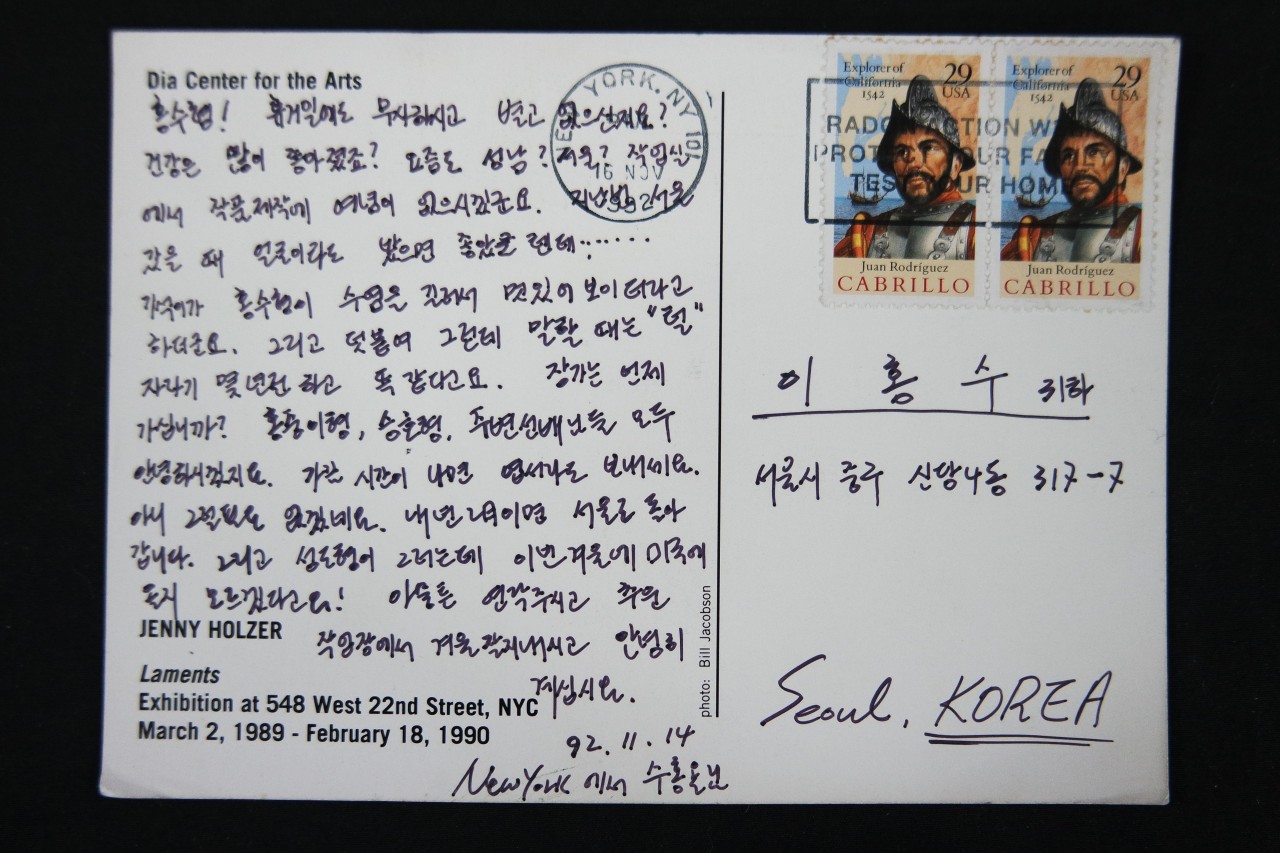 Dia Center for the Arts
홍수형! 휴거일에도 무사하시고 별고 없으신지요?
건강은 많이 좋아졌죠? 요즘도 성남? 서울? 작업실
에서 작품제작에 여념이 없으시겠군요. 지난번 서울
갔을 때 얼굴이라도 봤으면 좋았을 텐데......
홍수형이 수염을 길러서 멋있어 보이더라고
하더군요. 그리고 덧붙여 그런데 말할 때는 "털"
자라기 몇년전 하고 똑 같다고요. 장가는 언제
가십니까? 형, 승호형, 주변선배님들 모두
안녕하시겠지요. 시간이 나면 엽서라도 보내세요.
아니 그럴필요 없겠네요. 내년 2월이면 서울로 돌아
갑니다. 그리고 성도형이 그러는데 이번겨울에 미국에
올지 모르겠다고요! 연락주시고 추운
작업장에서 겨울 잘지내시고 안녕히
계십시요.
92. 11. 14
New York 에서 수홍
JENNY HOLZER
Laments
Exhibition at 548 West 22nd Street, NYC
March 2, 1989 - February 18, 1990
photo: Bill Jacobson
YORK, NY 101
16 NOV
1992
Explorer of
California
1542
29
USA
Juan Rodríguez
CABRILLO
Explorer of
California
1542
29
USA
Juan Rodríguez
CABRILLO
RADON ACTION WEEK
PROTECT YOUR FAMILY
TEST YOUR HOME
이 홍 수 귀하
서울시 중구 신당4동 317-7
Seoul, KOREA